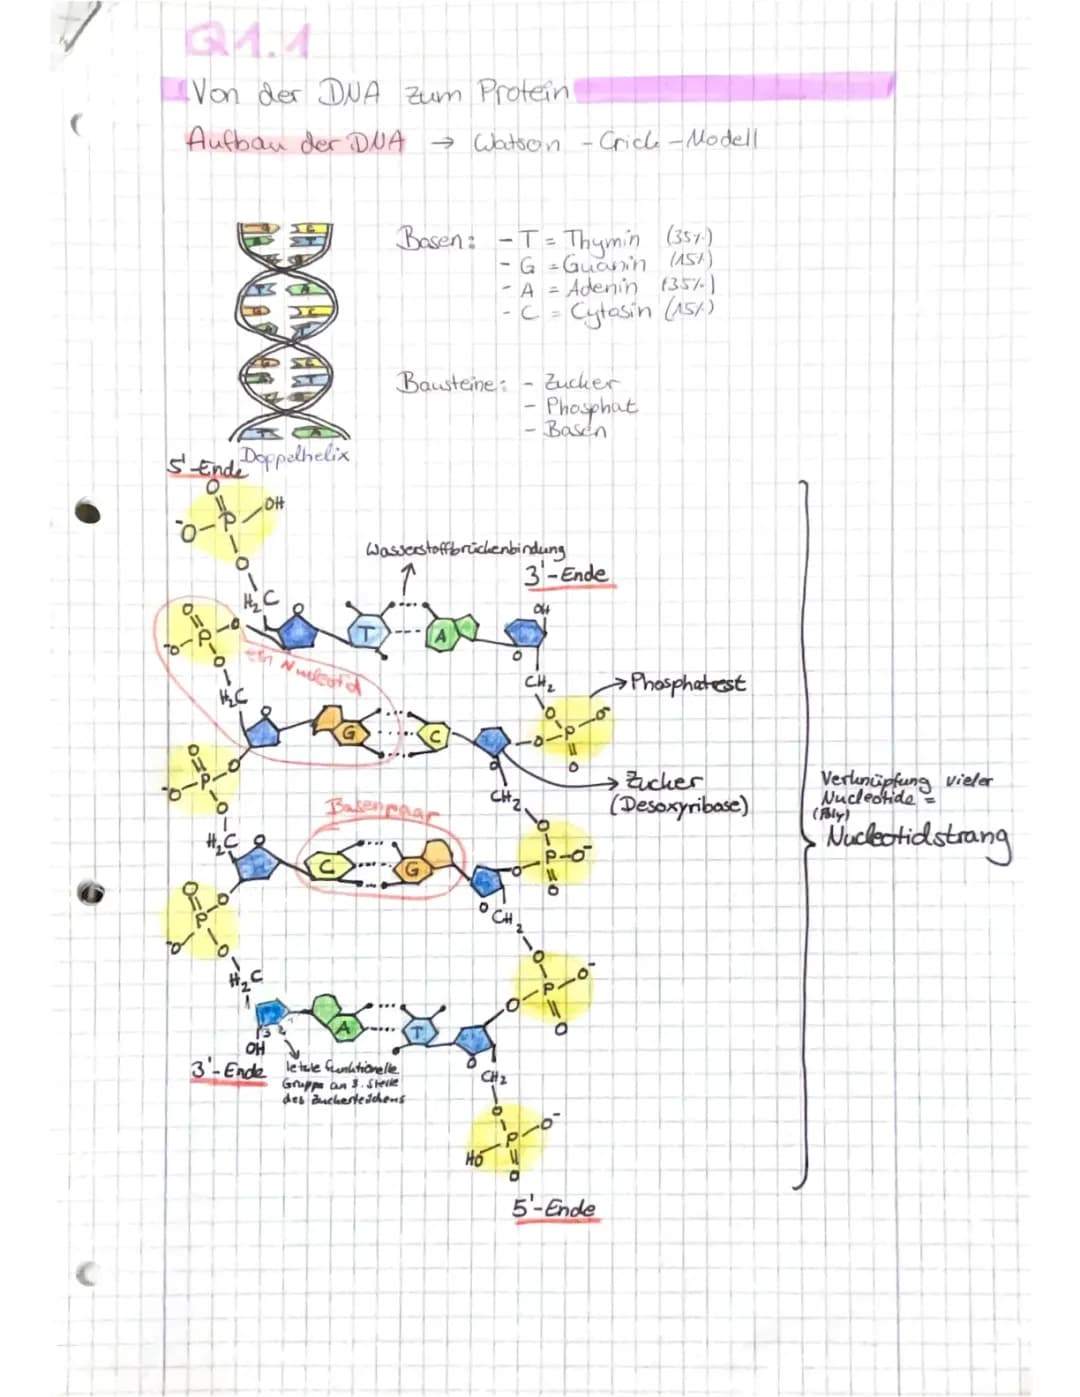 Q1.1
Von der DNA zum Protein
Aufbau der DNA → Watson - Crick - Modell
Basen: - T = Thymin (35%)
- G = Guanin (15%)
- A = Adenin (35%)
- C = Cytosin (15%)
Bausteine: - Zucker
- Phosphat
- Basen
Doppelhelix
5'-Ende
O
OH
⁻O-P
O
H₂C
Wasserstoffbrückenbindung
3'-Ende
OH
O
T
A
O
ein Nucleotid
O
⁻O P O
O
H₂C
CH₂
→ Phosphatrest
O
G
C
O
O P O⁻
O
O
→ Zucker
(Desoxyribose)
Verknüpfung vieler
Nucleotide =
(Poly)
Nucleotidstrang
O
⁻O P O
O
H₂C
CH₂
Basenpaar
O
C
G
O
O P-O⁻
O
O
O
⁻O P O
O
H₂C
CH₂
A
T
O
O P O⁻
O
O
3 2
OH
3'-Ende
letzte funktionelle
Gruppe an 3. Stelle
des Zuckerteilchens
CH₂
O
P O⁻
HO
O
5'-Ende